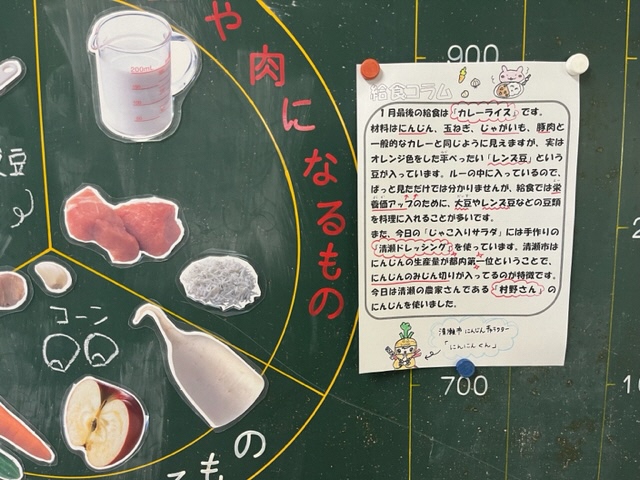 や肉になるもの
200mL
豆
コーン
の
も
900
700
給食コラム
1月最後の給食は「カレーライス」です。
材料はにんじん、玉ねぎ、じゃがいも、豚肉と
一般的なカレーと同じように見えますが、実は
オレンジ色をした平べったい「レンズ豆」という
豆が入っています。ルーの中に入っているので、
ぱっと見ただけでは分かりませんが、給食では栄
養価アップのために、大豆やレンズ豆などの豆類
を料理に入れることが多いです。
また、今日の「じゃこ入りサラダ」には手作りの
「清瀬ドレッシング」を使っています。清瀬市は
にんじんの生産量が都内第一位ということで、
にんじんのみじん切りが入ってるのが特徴です。
今日は清瀬の農家さんである「村野さん」の
にんじんを使いました。
清瀬市 にんじんキャラクター
「にんにんくん」